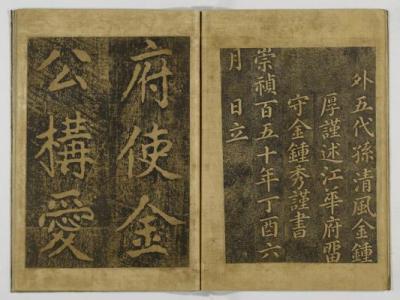 外五代孫清風金鍾
厚謹述江華府畱
守金鍾秀謹書
崇禎百五十年丁酉六
月 日立
府使金
公構愛